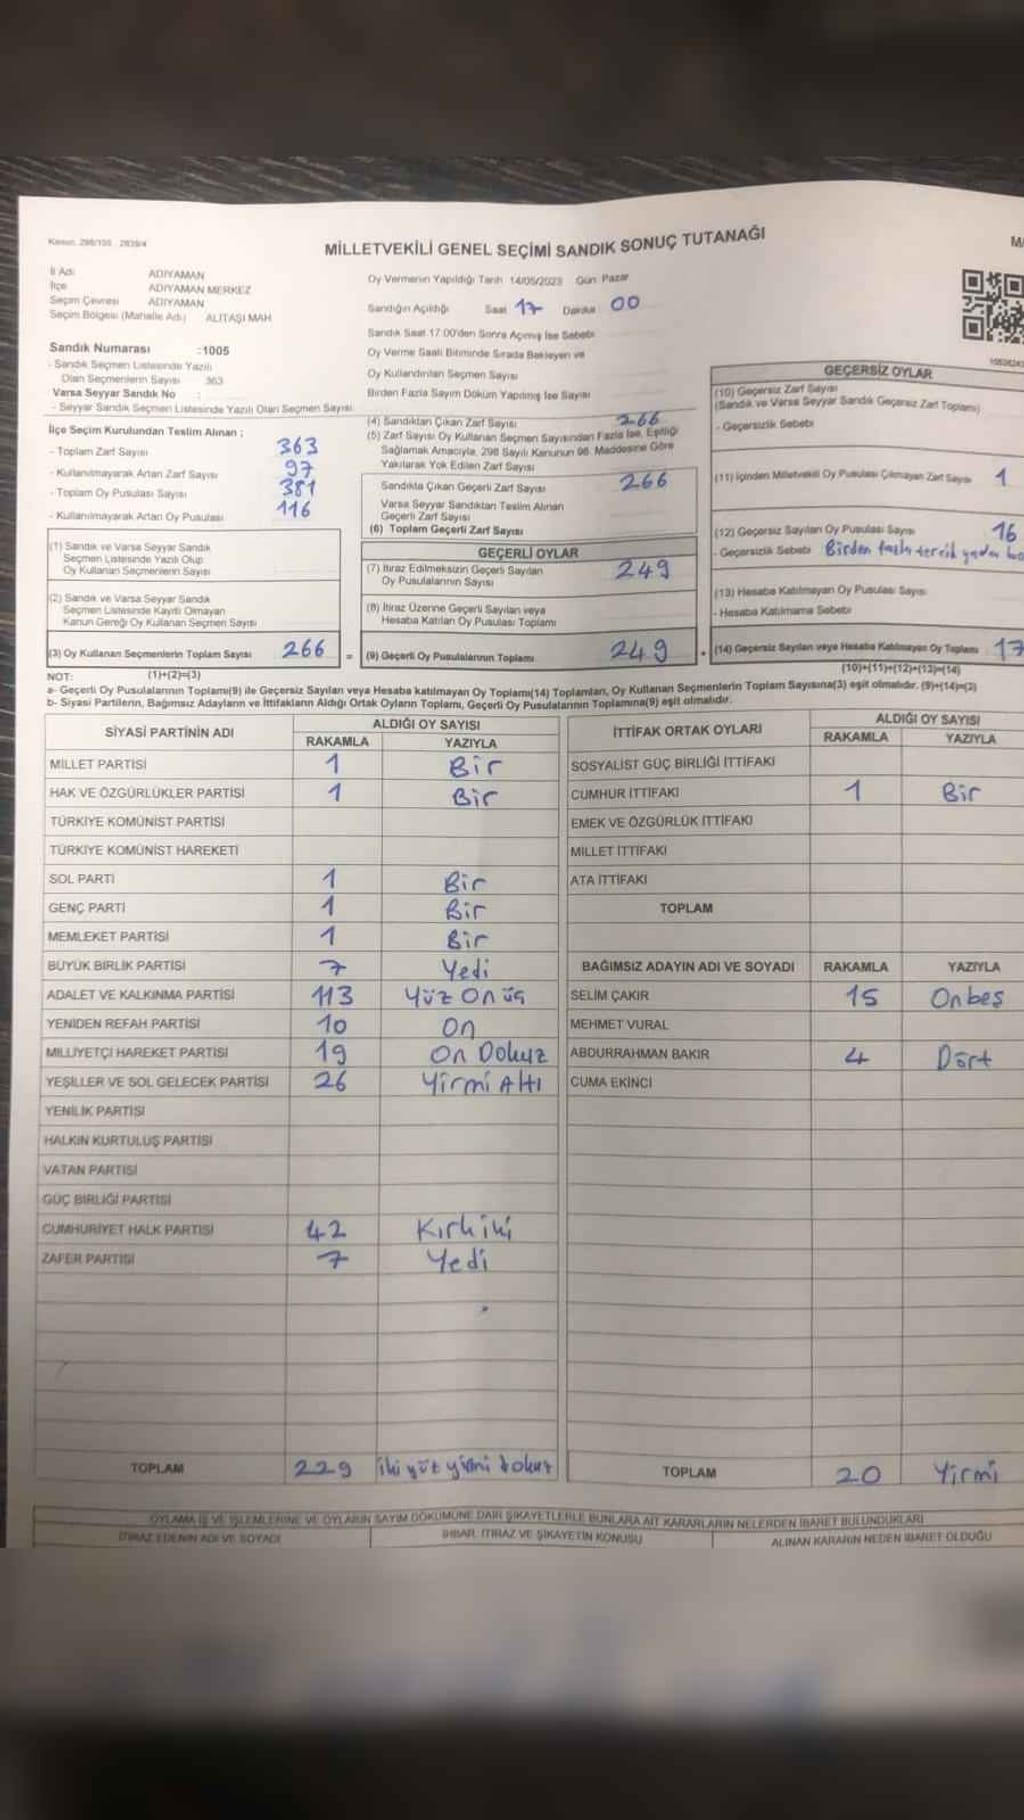 Kanun: 298/105 2839/4
MİLLETVEKİLİ GENEL SEÇİMİ SANDIK SONUÇ TUTANAĞI
İl Adı ADIYAMAN
İlçe ADIYAMAN MERKEZ
Seçim Çevresi ADIYAMAN
Seçim Bölgesi (Mahalle Adı) ALİTAŞI MAH
Sandık Numarası :1005
- Sandık Seçmen Listesinde Yazılı
Olan Seçmenlerin Sayısı 363
Varsa Seyyar Sandık No :
- Seyyar Sandık Seçmen Listesinde Yazılı Olan Seçmen Sayısı
İlçe Seçim Kurulundan Teslim Alınan ;
- Toplam Zarf Sayısı 363
- Kullanılmayarak Artan Zarf Sayısı 97
- Toplam Oy Pusulası Sayısı 381
- Kullanılmayarak Artan Oy Pusulası 116
(1) Sandık ve Varsa Seyyar Sandık
Seçmen Listesinde Yazılı Olup
Oy Kullanan Seçmenlerin Sayısı
(2) Sandık ve Varsa Seyyar Sandık
Seçmen Listesinde Kayıtlı Olmayan
Kanun Gereği Oy Kullanan Seçmen Sayısı
(3) Oy Kullanan Seçmenlerin Toplam Sayısı 266 =
Oy Vermenin Yapıldığı Tarih 14/05/2023 Gün: Pazar
Sandığın Açıldığı Saat 17 Dakika 00
Sandık Saat 17:00'den Sonra Açılmış İse Sebebi
Oy Verme Saati Bitiminde Sırada Bekleyen ve
Oy Kullandırılan Seçmen Sayısı
Birden Fazla Sayım Döküm Yapılmış İse Sayısı
(4) Sandıktan Çıkan Zarf Sayısı 266
(5) Zarf Sayısı Oy Kullanan Seçmen Sayısından Fazla İse, Eşitliği
Sağlamak Amacıyla, 298 Sayılı Kanunun 98. Maddesine Göre
Yakılarak Yok Edilen Zarf Sayısı
Sandıkta Çıkan Geçerli Zarf Sayısı 266
Varsa Seyyar Sandıktan Teslim Alınan
Geçerli Zarf Sayısı
(6) Toplam Geçerli Zarf Sayısı
GEÇERLİ OYLAR
(7) İtiraz Edilmeksizin Geçerli Sayılan
Oy Pusulalarının Sayısı 249
(8) İtiraz Üzerine Geçerli Sayılan veya
Hesaba Katılan Oy Pusulası Toplamı
(9) Geçerli Oy Pusulalarının Toplamı 249 +
GEÇERSİZ OYLAR
(10) Geçersiz Zarf Sayısı
(Sandık ve Varsa Seyyar Sandık Geçersiz Zarf Toplamı)
- Geçersizlik Sebebi
(11) İçinden Milletvekili Oy Pusulası Çıkmayan Zarf Sayısı 1
(12) Geçersiz Sayılan Oy Pusulası Sayısı 16
- Geçersizlik Sebebi Birden fazla tercih
(13) Hesaba Katılmayan Oy Pusulası Sayısı
- Hesaba Katılmama Sebebi
(14) Geçersiz Sayılan veya Hesaba Katılmayan Oy Toplamı 17
NOT: (1)+(2)=(3) (10)+(11)+(12)+(13)=(14)
a- Geçerli Oy Pusulalarının Toplamı(9) ile Geçersiz Sayılan veya Hesaba katılmayan Oy Toplamı(14) Toplamları, Oy Kullanan Seçmenlerin Toplam Sayısına(3) eşit olmalıdır. (9)+(14)=(3)
b- Siyasi Partilerin, Bağımsız Adayların ve İttifakların Aldığı Ortak Oyların Toplamı, Geçerli Oy Pusulalarının Toplamına(9) eşit olmalıdır.
SİYASİ PARTİNİN ADI ALDIĞI OY SAYISI
RAKAMLA YAZIYLA
MİLLET PARTİSİ 1 Bir
HAK VE ÖZGÜRLÜKLER PARTİSİ 1 Bir
TÜRKİYE KOMÜNİST PARTİSİ
TÜRKİYE KOMÜNİST HAREKETİ
SOL PARTİ 1 Bir
GENÇ PARTİ 1 Bir
MEMLEKET PARTİSİ 1 Bir
BÜYÜK BİRLİK PARTİSİ 7 Yedi
ADALET VE KALKINMA PARTİSİ 113 Yüz On üç
YENİDEN REFAH PARTİSİ 10 On
MİLLİYETÇİ HAREKET PARTİSİ 19 On Dokuz
YEŞİLLER VE SOL GELECEK PARTİSİ 26 Yirmi Altı
YENİLİK PARTİSİ
HALKIN KURTULUŞ PARTİSİ
VATAN PARTİSİ
GÜÇ BİRLİĞİ PARTİSİ
CUMHURİYET HALK PARTİSİ 42 Kırk iki
ZAFER PARTİSİ 7 Yedi
TOPLAM 229 iki yüz yirmi dokuz
İTTİFAK ORTAK OYLARI ALDIĞI OY SAYISI
RAKAMLA YAZIYLA
SOSYALİST GÜÇ BİRLİĞİ İTTİFAKI
CUMHUR İTTİFAKI 1 Bir
EMEK VE ÖZGÜRLÜK İTTİFAKI
MİLLET İTTİFAKI
ATA İTTİFAKI
TOPLAM
BAĞIMSIZ ADAYIN ADI VE SOYADI RAKAMLA YAZIYLA
SELİM ÇAKIR 15 Onbeş
MEHMET VURAL
ABDURRAHMAN BAKIR 4 Dört
CUMA EKİNCİ
TOPLAM 20 Yirmi
OYLAMA İŞ VE İŞLEMLERİNE VE OYLARIN SAYIM DÖKÜMÜNE DAİR ŞİKAYETLERLE BUNLARA AİT KARARLARIN NELERDEN İBARET BULUNDUKLARI
İTİRAZ EDENİN ADI VE SOYADI İHBAR, İTİRAZ VE ŞİKAYETİN KONUSU ALINAN KARARIN NEDEN İBARET OLDUĞU